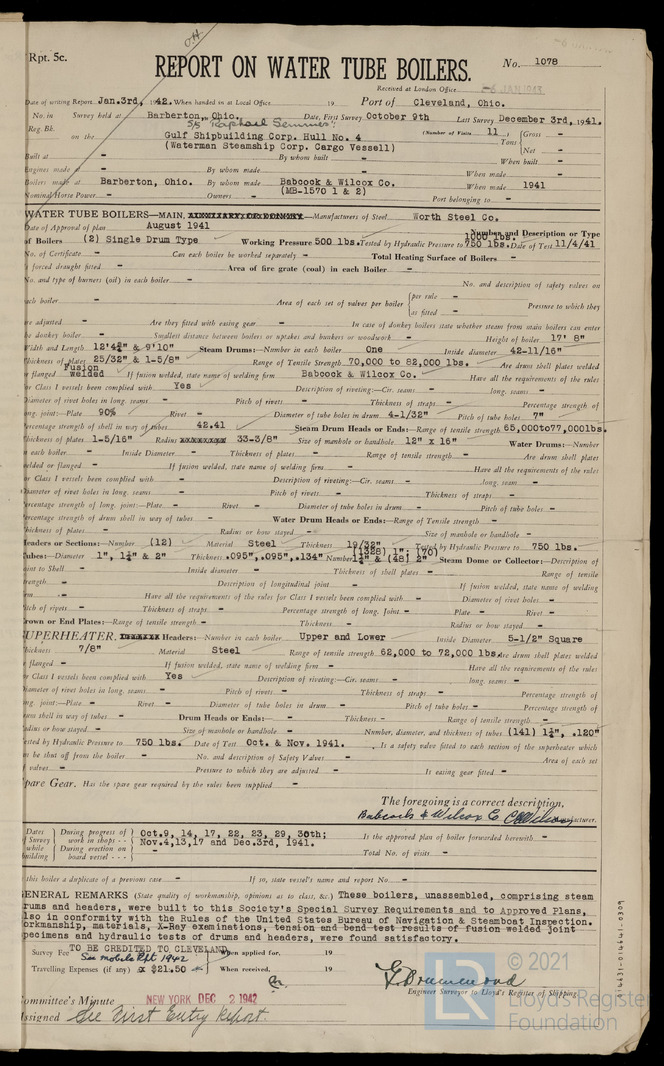 Rpt. 5c.
REPORT ON WATER TUBE BOILERS.
No. 1078
Received at London Office
Date of writing Report Jan.3rd, 1942. When handed in at Local Office 19 Port of Cleveland, Ohio.
No. in Survey held at Barberton, Ohio. Date, First Survey October 9th Last Survey December 3rd, 1941.
Reg. Bk. (Number of Visits 11)
on the S/S "Raphael Semmes"
Gulf Shipbuilding Corp. Hull No. 4
(Waterman Steamship Corp. Cargo Vessel)
Tons Gross - Net -
Built at - By whom built - When built -
Engines made at - By whom made - When made -
Boilers made at Barberton, Ohio. By whom made Babcock & Wilcox Co. When made 1941
(MB-1570 1 & 2)
Nominal Horse Power - Owners - Port belonging to -
WATER TUBE BOILERS—MAIN, Manufacturers of Steel Worth Steel Co.
Date of Approval of plan August 1941 Number and Description or Type
of Boilers (2) Single Drum Type Working Pressure 500 lbs. Tested by Hydraulic Pressure to 1000 lbs. 750 lbs. Date of Test 11/4/41
No. of Certificate - Can each boiler be worked separately - Total Heating Surface of Boilers -
Is forced draught fitted - Area of fire grate (coal) in each Boiler -
No. and type of burners (oil) in each boiler - No. and description of safety valves on
each boiler - Area of each set of valves per boiler per rule - as fitted - Pressure to which they
are adjusted - Are they fitted with easing gear - In case of donkey boilers state whether steam from main boilers can enter
the donkey boiler - Smallest distance between boilers or uptakes and bunkers or woodwork - Height of boiler 17' 8"
Width and Length 12'4¾" & 9'10" Steam Drums:—Number in each boiler One Inside diameter 42-11/16"
Thickness of plates 25/32" & 1-5/8" Range of Tensile Strength 70,000 to 82,000 lbs. Are drum shell plates welded
or flanged Fusion Welded If fusion welded, state name of welding firm Babcock & Wilcox Co. Have all the requirements of the rules
for Class I vessels been complied with Yes Description of riveting:—Cir. seams - long. seams -
Diameter of rivet holes in long. seams - Pitch of rivets - Thickness of straps - Percentage strength of
long. joint:—Plate 90% Rivet - Diameter of tube holes in drum 4-1/32" Pitch of tube holes 7"
Percentage strength of shell in way of tubes 42.41 Steam Drum Heads or Ends:—Range of tensile strength 65,000to77,000lbs.
Thickness of plates 1-5/16" Radius 33-3/8" Size of manhole or handhole 12" x 16" Water Drums:—Number
in each boiler - Inside Diameter - Thickness of plates - Range of tensile strength - Are drum shell plates
welded or flanged - If fusion welded, state name of welding firm - Have all the requirements of the rules
for Class I vessels been complied with - Description of riveting:—Cir. seams - long. seam -
Diameter of rivet holes in long. seams - Pitch of rivets - Thickness of straps -
Percentage strength of long. joint:—Plate - Rivet - Diameter of tube holes in drum - Pitch of tube holes -
Percentage strength of drum shell in way of tubes - Water Drum Heads or Ends:—Range of Tensile strength -
Thickness of plates - Radius or how stayed - Size of manhole or handhole -
Headers or Sections:—Number (12) Material Steel Thickness 19/32" Tested by Hydraulic Pressure to 750 lbs.
Tubes:—Diameter 1", 1¼" & 2" Thickness .095",.095",.134" Number (1328) 1"; (70) 1¼" & (48) 2" Steam Dome or Collector:—Description of
Joint to Shell - Inside diameter - Thickness of shell plates - Range of tensile
strength - Description of longitudinal joint - If fusion welded, state name of welding
firm - Have all the requirements of the rules for Class I vessels been complied with - Diameter of rivet holes -
Pitch of rivets - Thickness of straps - Percentage strength of long. Joint - Plate - Rivet -
Crown or End Plates:—Range of tensile strength - Thickness - Radius or how stayed -
SUPERHEATER. Headers:—Number in each boiler Upper and Lower Inside Diameter 5-1/2" Square
Thickness 7/8" Material Steel Range of tensile strength 62,000 to 72,000 lbs. Are drum shell plates welded
or flanged - If fusion welded, state name of welding firm - Have all the requirements of the rules
for Class I vessels been complied with Yes Description of riveting:—Cir. seams - long. seams -
Diameter of rivet holes in long. seams - Pitch of rivets - Thickness of straps - Percentage strength of
long. joint:—Plate - Rivet - Diameter of tube holes in drum - Pitch of tube holes - Percentage strength of
drum shell in way of tubes - Drum Heads or Ends:— - Thickness - Range of tensile strength -
Radius or how stayed - Size of manhole or handhole - Number, diameter, and thickness of tubes (141) 1¼", .120"
Tested by Hydraulic Pressure to 750 lbs. Date of Test Oct. & Nov. 1941. Is a safety valve fitted to each section of the superheater which
can be shut off from the boiler - No. and description of Safety Valves - Area of each set
of valves - Pressure to which they are adjusted - Is easing gear fitted -
Spare Gear. Has the spare gear required by the rules been supplied -
The foregoing is a correct description,
Babcock & Wilcox Co Manufacturer.
Dates of Survey while building
During progress of work in shops - - Oct.9, 14, 17, 22, 23, 29, 30th; Nov.4,13,17 and Dec.3rd, 1941.
Is the approved plan of boiler forwarded herewith -
During erection on board vessel - - -
Total No. of visits -
Is this boiler a duplicate of a previous case - If so, state vessel's name and report No. -
GENERAL REMARKS (State quality of workmanship, opinions as to class, &c.) These boilers, unassembled, comprising steam
drums and headers, were built to this Society's Special Survey Requirements and to Approved Plans,
also in conformity with the Rules of the United States Bureau of Navigation & Steamboat Inspection.
Workmanship, materials, X-Ray examinations, tension and bend test results of fusion welded joint
specimens and hydraulic tests of drums and headers, were found satisfactory.
TO BE CREDITED TO CLEVELAND
Survey Fee See Mobile Rpt 1942 When applied for, 19
Travelling Expenses (if any) $21.50 When received, 19
Engineer Surveyor to Lloyd's Register of Shipping
Committee's Minute NEW YORK DEC 2 1942
Assigned See First Entry Report.
© 2021
Lloyd's Register
Foundation
LR